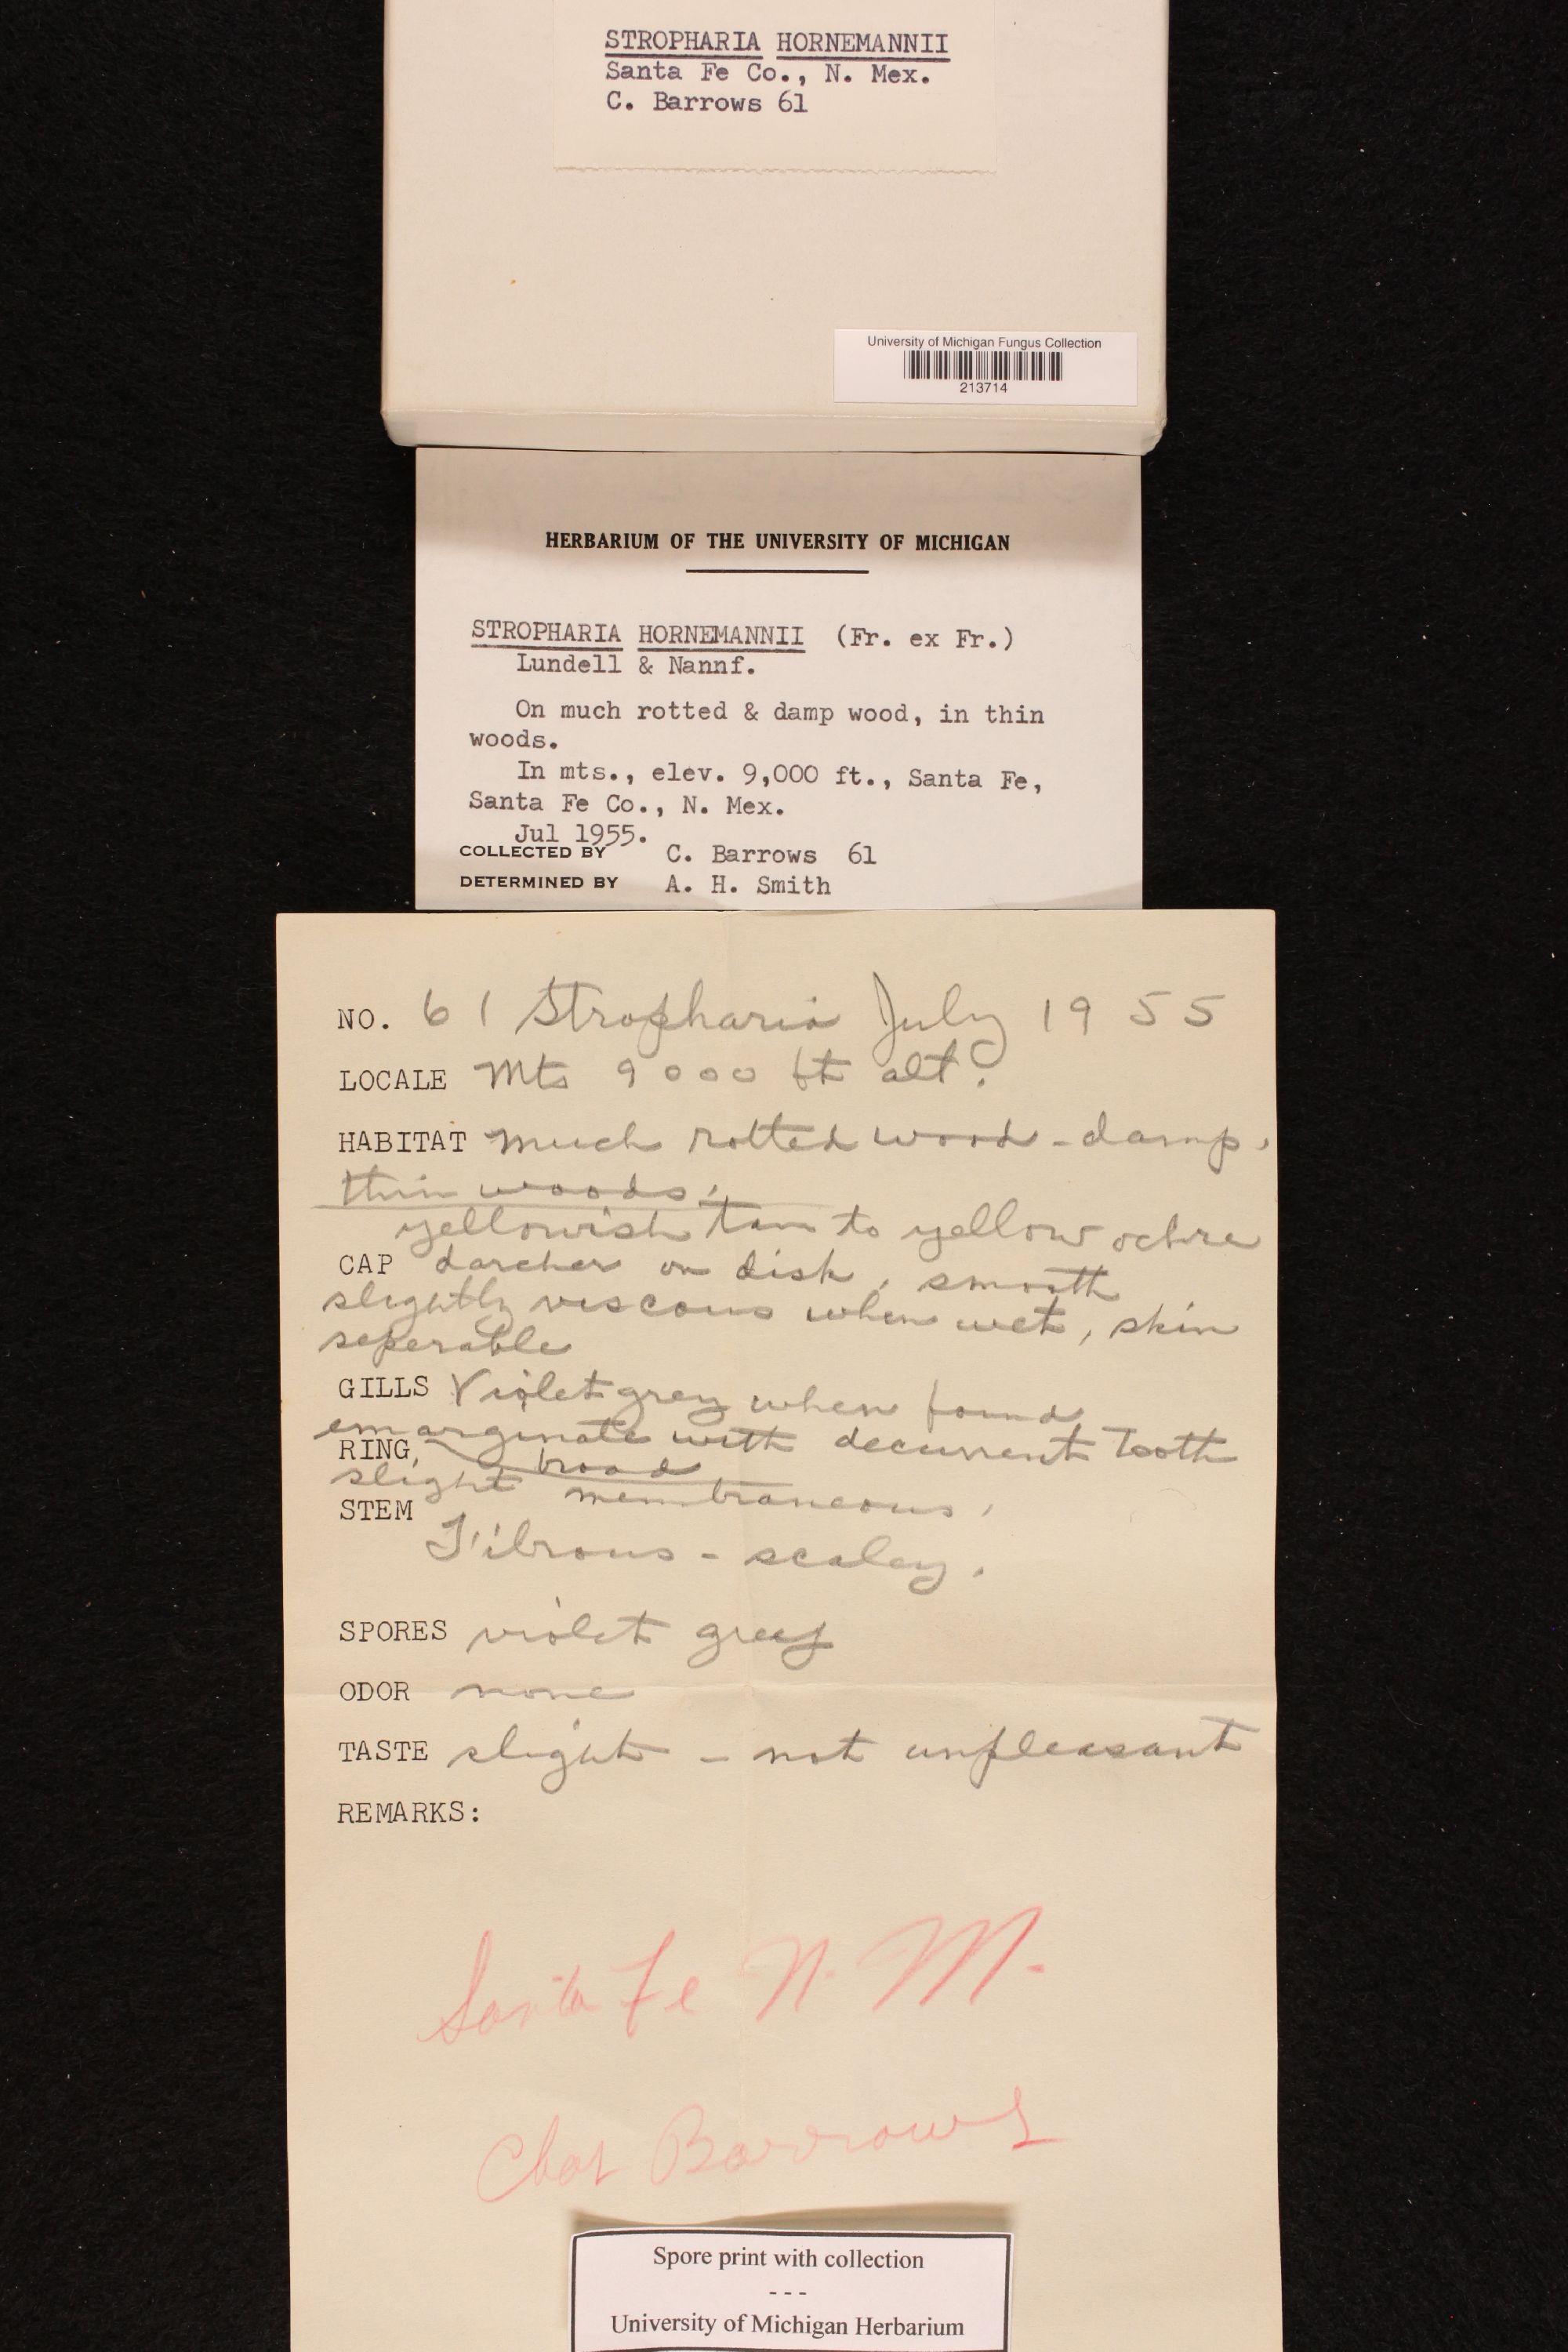 STROPHARIA HORNEMANNII
Santa Fe Co., N. Mex.
C. Barrows 61
University of Michigan Fungus Collection
213714
HERBARIUM OF THE UNIVERSITY OF MICHIGAN
STROPHARIA HORNEMANNII (Fr. ex Fr.)
Lundell & Nannf.
On much rotted & damp wood, in thin
woods.
In mts., elev. 9,000 ft., Santa Fe,
Santa Fe Co., N. Mex.
Jul 1955.
COLLECTED BY C. Barrows 61
DETERMINED BY A. H. Smith
NO. 61 Stropharia July 1955
LOCALE Mts 9000 ft alt.
HABITAT much rotted wood - damp,
thin woods.
yellowish tan to yellow ochre
CAP darcher on disk, smooth
slightly viscous when wet, skin
seperable
GILLS Violet grey when found
emarginate with decurrent Tooth
RING, broad
slight membraneous,
STEM
Fibrous - scaley.
SPORES violet grey
ODOR none
TASTE slight - not unpleasant
REMARKS:
Santa Fe N. M.
Chas Barrows
Spore print with collection
---
University of Michigan Herbarium